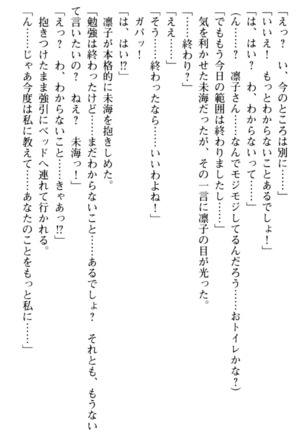 「えっ？　い、今のところは別に……」
「いいえ！　もっとわからないことあるでしょ！」
「は、はい？　わ、わからないって……」
（ん……？　凛子さん……なんでモジモジしてるんだろう……おトイレかな？）
「でももう今日の範囲は終わりましたし……」
気を利かせた未海だったが、その一言に凛子の目が光った。
「……終わり？」
「ええ……」
「そう……終わったなら……いいわよね！」
ガバッ！
「は、はい!?」
凛子が本格的に未海を抱きしめた。
「勉強は終わったけど……まだわからないこと……あるでしょ？　それとも、もうない
て言いたいの？　ねえ？　未海っ！」
「えっ？　わ、わからないこと……きゃあっ!?」
抱きつけたまま強引にベッドへ連れて行かれる。
「ん……じゃあ今度は私に教えて……あなたのことをもっと私に……」